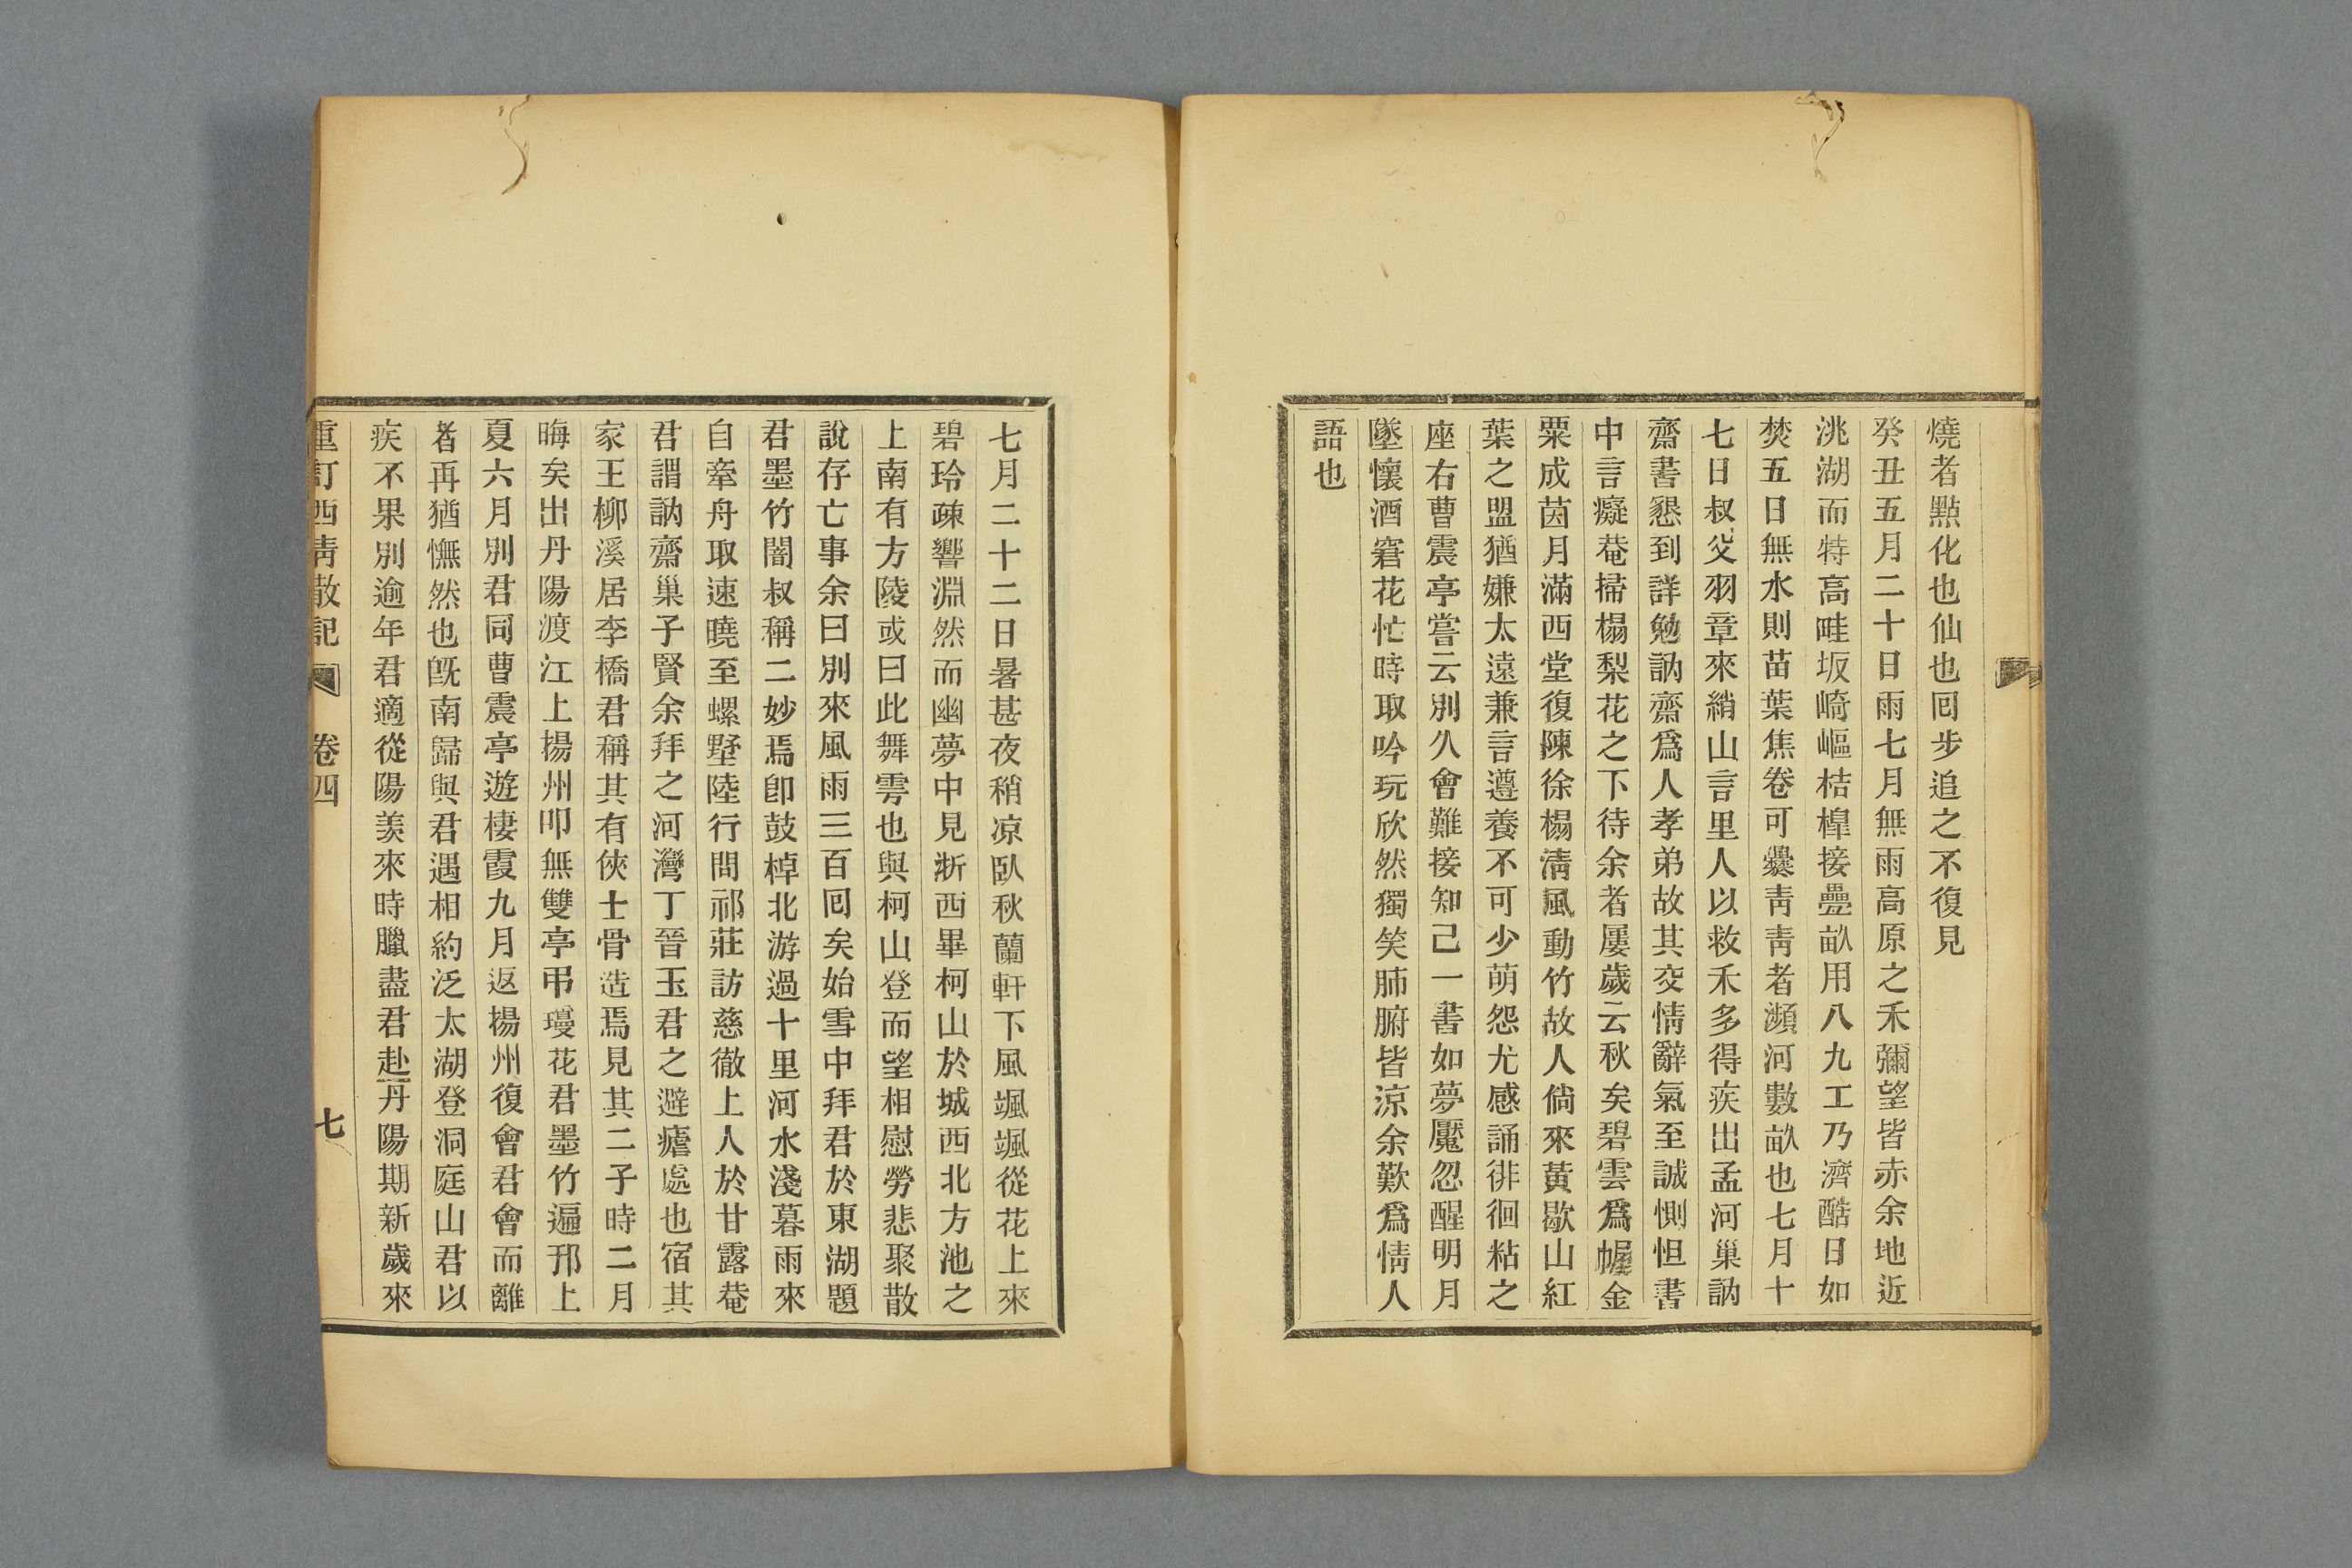 燒者點化也仙也回步追之不復見
癸丑五月二十日雨七月無雨高原之禾彌望皆赤余地近
洮湖而特高畦坂崎嶇桔橰接疊畝用八九工乃濟酷日如
焚五日無水則苗葉焦卷可爨靑靑者瀕河數畝也七月十
七日叔父羽章來綃山言里人以救禾多得疾出孟河巢訥
齋書懇到詳勉訥齋爲人孝弟故其交情辭氣至誠惻怛書
中言癡菴掃榻梨花之下待余者屢歲云秋矣碧雲爲幄金
粟成茵月滿西堂復陳徐榻淸風動竹故人倘來黃歇山紅
葉之盟猶嫌太遠兼言遵養不可少萌怨尤感誦徘徊粘之
座右曹震亭嘗云別久會難接知己一書如夢魘忽醒明月
墜懷酒窘花忙時取吟玩欣然獨笑肺腑皆涼余歎爲情人
語也
七月二十二日暑甚夜稍凉臥秋蘭軒下風颯颯從花上來
碧玲疎響淵然而幽夢中見浙西畢柯山於城西北方池之
上南有方陵或曰此舞雩也與柯山登而望相慰勞悲聚散
說存亡事余曰別來風雨三百回矣始雪中拜君於東湖題
君墨竹闇叔稱二妙焉卽鼓棹北游過十里河水淺暮雨來
自牽舟取速曉至螺墅陸行問祁莊訪慈徹上人於甘露菴
君謂訥齋巢子賢余拜之河灣丁晉玉君之避瘧處也宿其
家王柳溪居李橋君稱其有俠士骨造焉見其二子時二月
晦矣出丹陽渡江上揚州叩無雙亭弔瓊花君墨竹遍邗上
夏六月別君同曹震亭遊棲霞九月返揚州復會君會而離
者再猶憮然也旣南歸與君遇相約泛太湖登洞庭山君以
疾不果別逾年君適從陽羨來時臘盡君赴丹陽期新歲來
重訂西靑散記 卷四 七